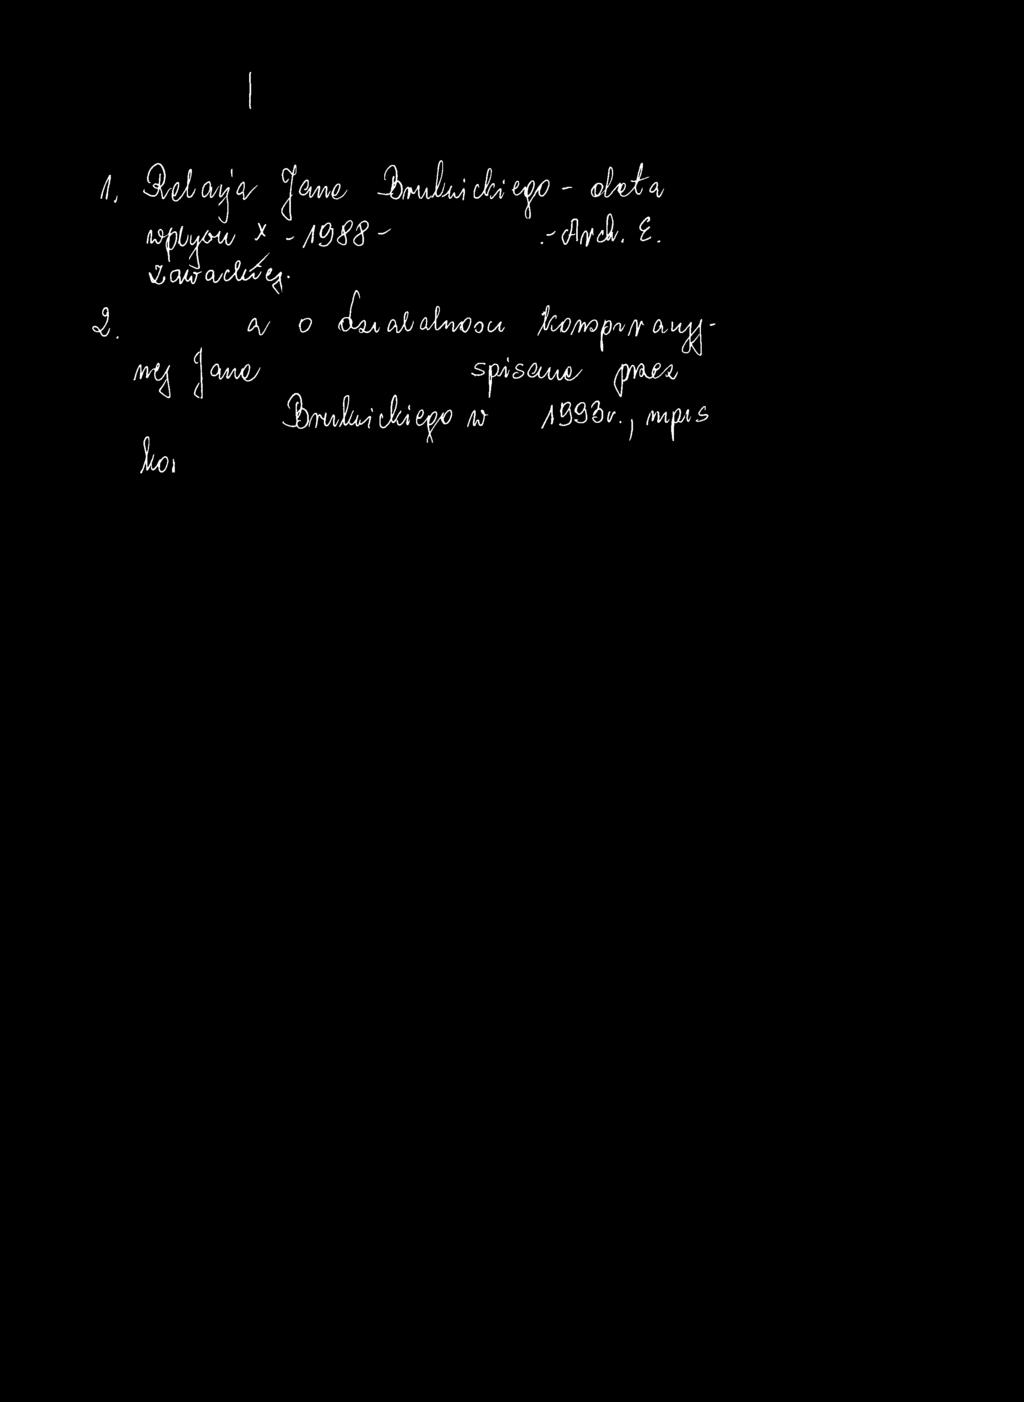 |
1. Relacja Jana Brukwickiego - data
wpływu X - 1988 - .- Arch. E.
Zawackiej.
2. a o działalności konspiracyj-
nej Jana spisana przez
Brukwickiego w 1993r., mpis